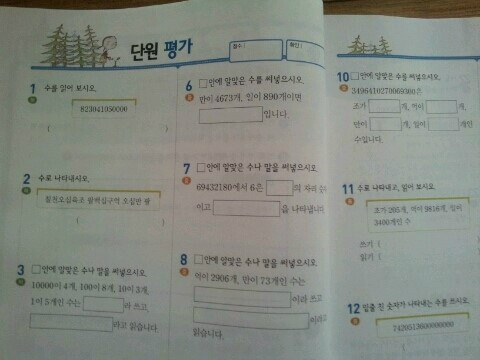 단원 평가
점수
확인
1 수를 읽어 보시오.
823041050000
( )
2 수로 나타내시오.
칠천오십육조 팔백십구억 오십만 팔
( )
3 □안에 알맞은 수나 말을 써넣으시오.
10000이 4개, 100이 8개, 10이 3개,
1이 5개인 수는 라 쓰고,
라고 읽습니다
6 □안에 알맞은 수를 써넣으시오.
만이 4673개, 일이 890개이면
입니다.
7 □안에 알맞은 수나 말을 써넣으시오.
69432180에서 6은 의 자리 숫
이고 을 나타냅니다
8 □안에 알맞은 수나 말을 써넣으시오.
억이 2906개, 만이 73개인 수는
이라 쓰고
이라고
읽습니다.
10 □안에 알맞은 수를 써넣으시오.
3496410270069300은
조가 개, 억이 개,
만이 개, 일이 개인
수입니다.
11 수로 나타내고, 읽어 보시오.
조가 265개, 억이 9816개, 일이
3400개인 수
쓰기 (
읽기 (
12 밑줄 친 숫자가 나타내는 수를 쓰시오.
7420513600000000
(